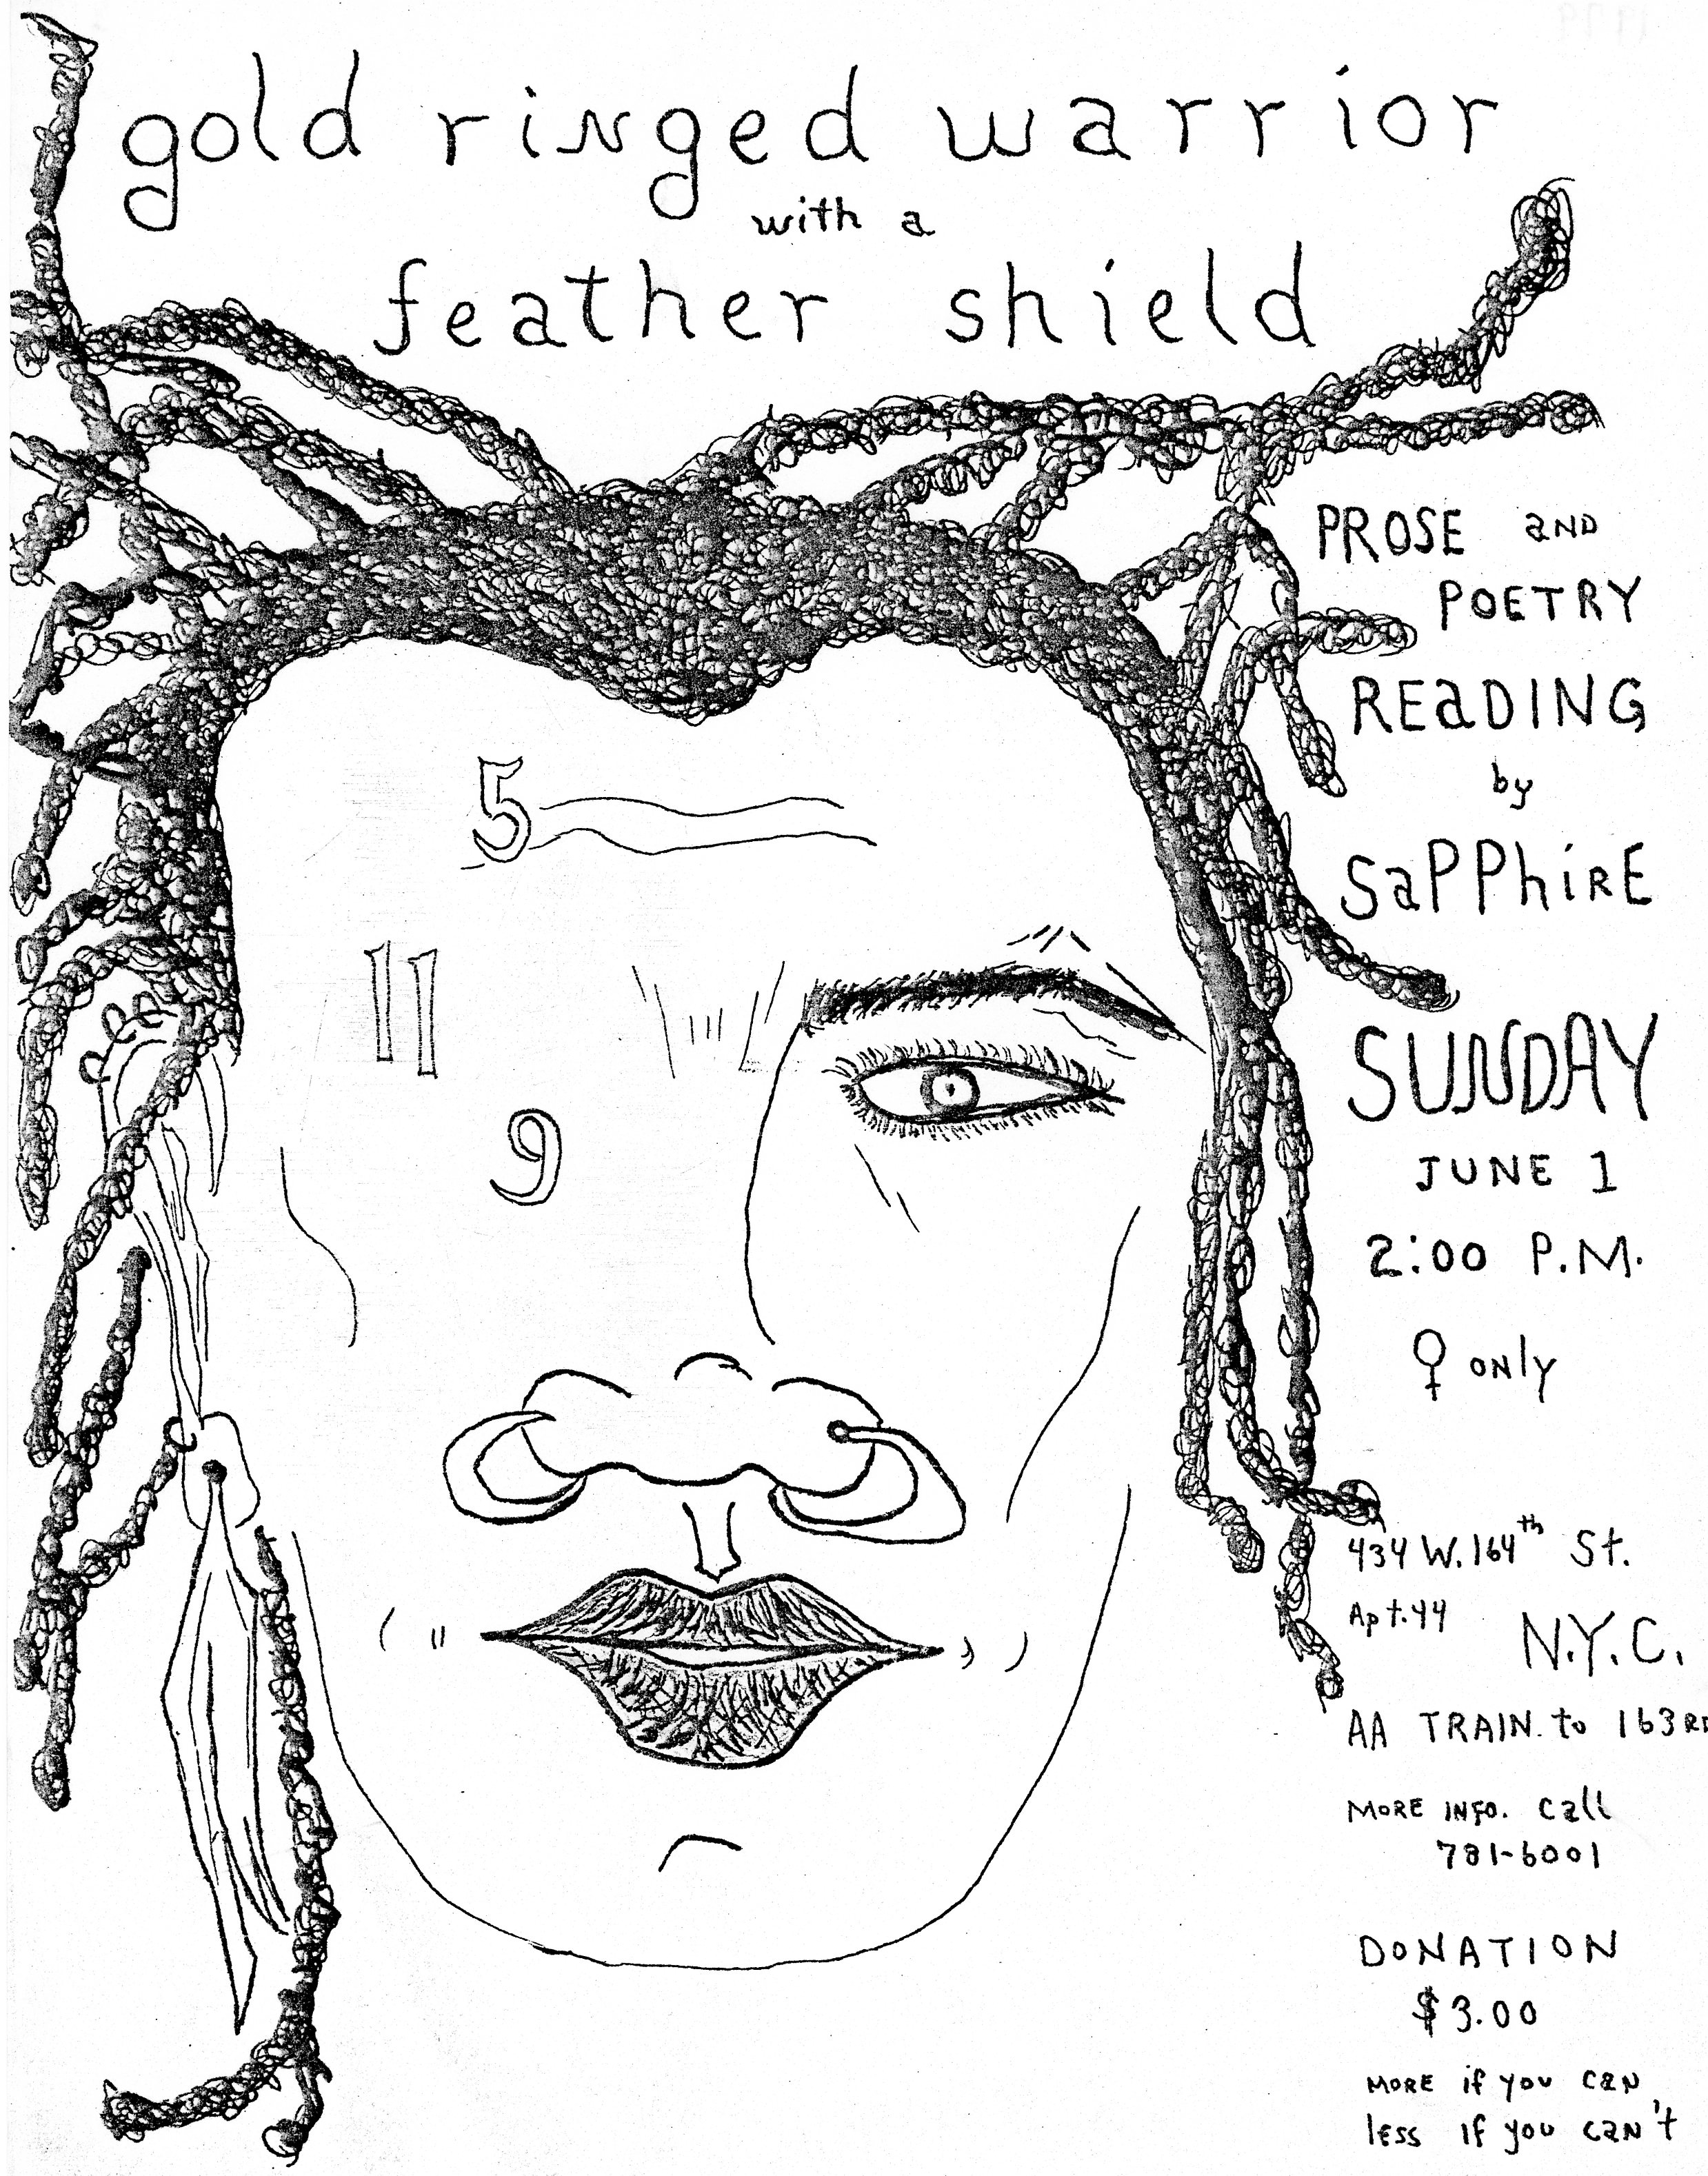 gold ringed warrior
with a
feather shield
PROSE aND
POETRY
REaDING
by
SaPPhiRE
SUNDAY
JUNE 1
2:00 P.M.
♀ ONly
434 W. 164th St.
Apt. 44
N.Y.C.
AA TRAIN. to 163RD
MORE INFO. Call
781-6001
DONATION
$3.00
MORE if you caN
lESS if you caN't
5
11
9